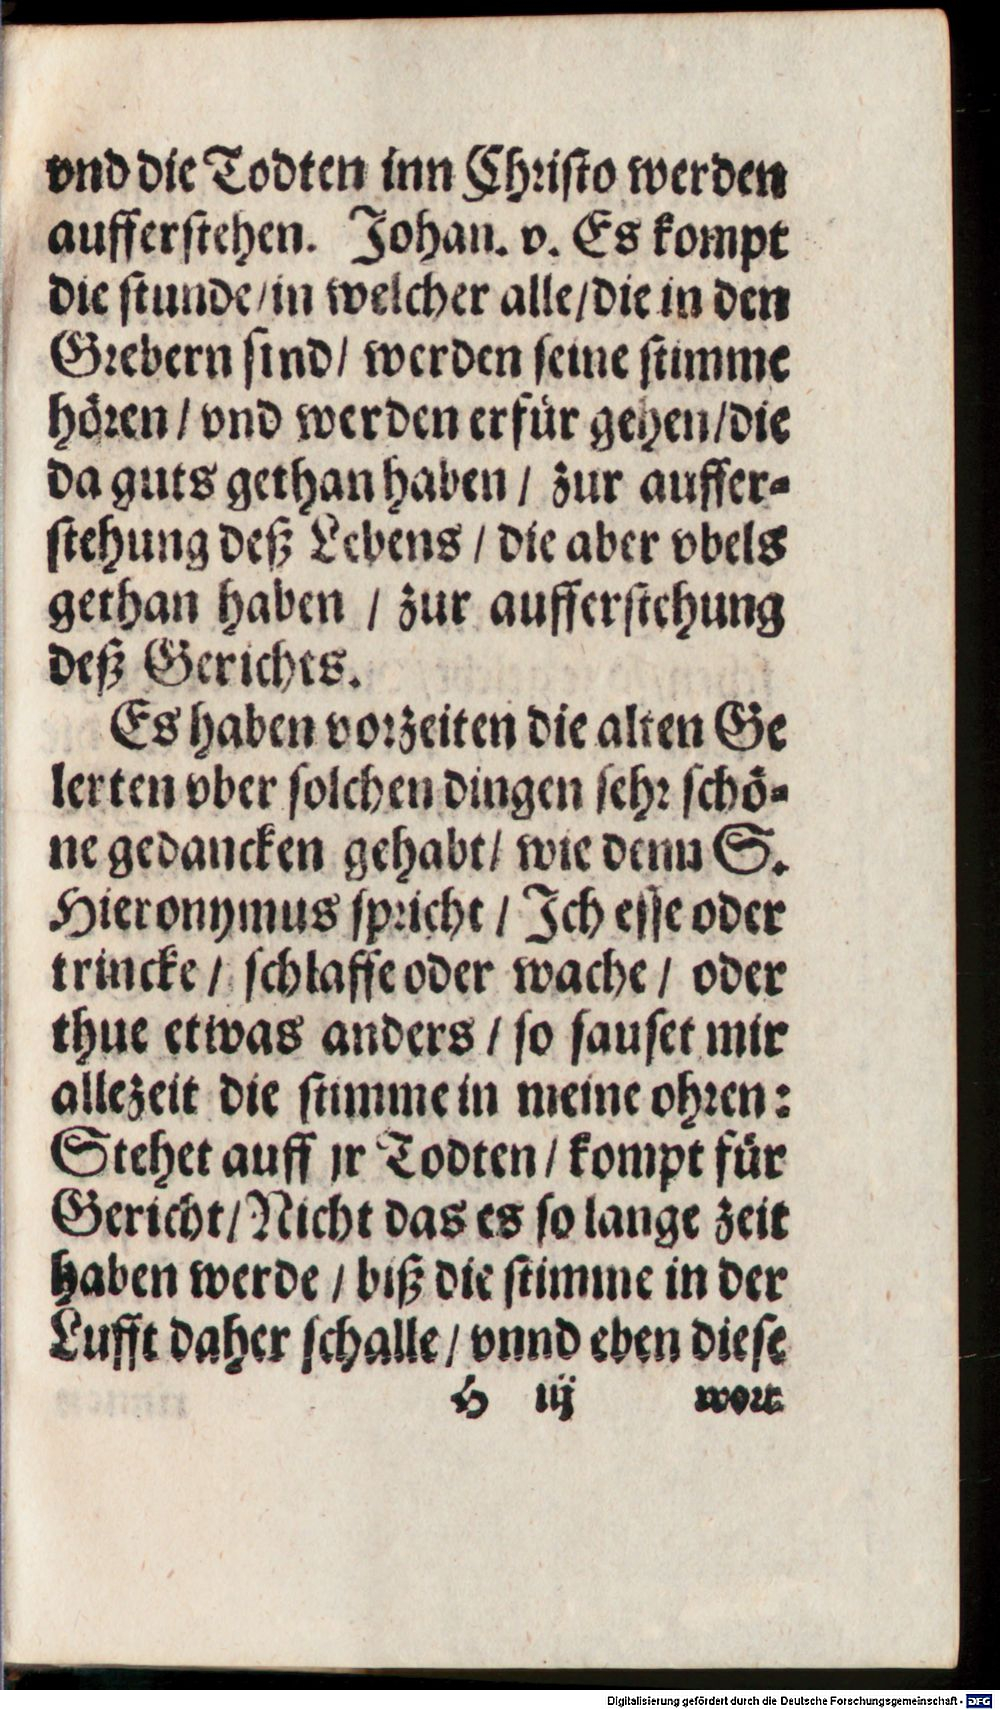 vnd die Todten inn Christo werden
aufferstehen. Johan. v. Es kompt
die stunde/in welcher alle/die in den
Grebern sind/ werden seine stimme
hören / vnd werden erfür gehen/die
da guts gethan haben / zur auffer-
stehung deß Lebens / die aber vbels
gethan haben / zur aufferstehung
deß Gerichts.
Es haben vorzeiten die alten Ge
lerten vber solchen dingen sehr schö-
ne gedancken gehabt/ wie denn S.
Hieronymus spricht / Ich esse oder
trincke / schlaffe oder wache / oder
thue etwas anders / so sauset mir
allezeit die stimme in meine ohren:
Stehet auff jr Todten / kompt für
Gericht/Nicht das es so lange zeit
haben werde / biß die stimme in der
Lufft daher schalle / vnnd eben diese
H iij wort
Digitalisierung gefördert durch die Deutsche Forschungsgemeinschaft - DFG